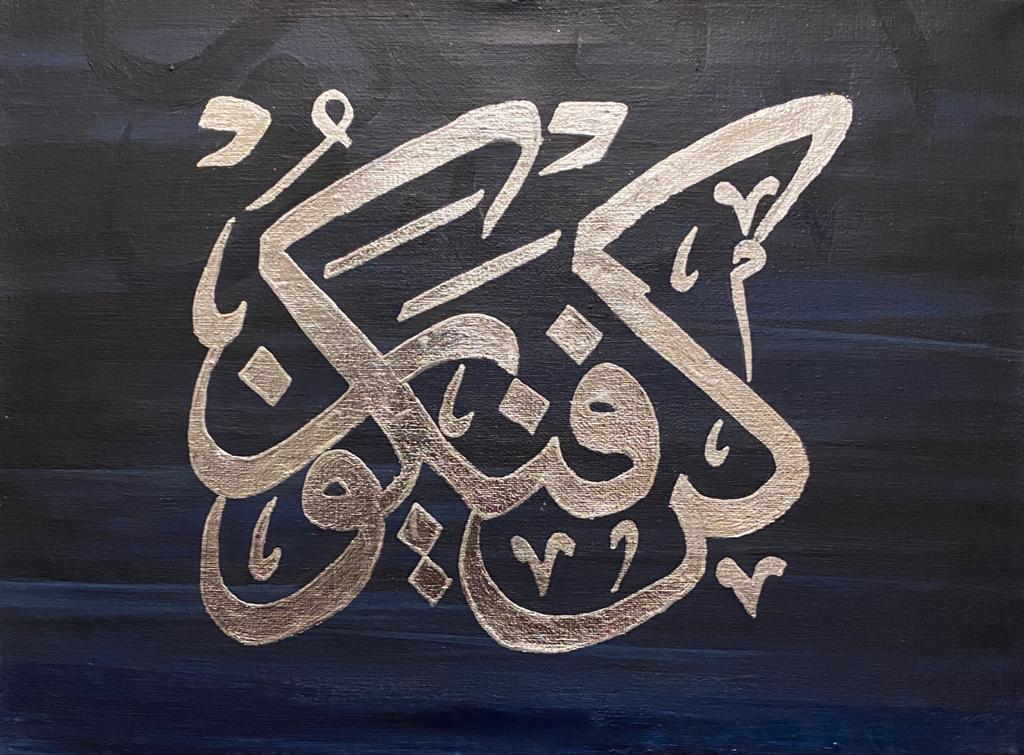 كُن فَيَكُونُ